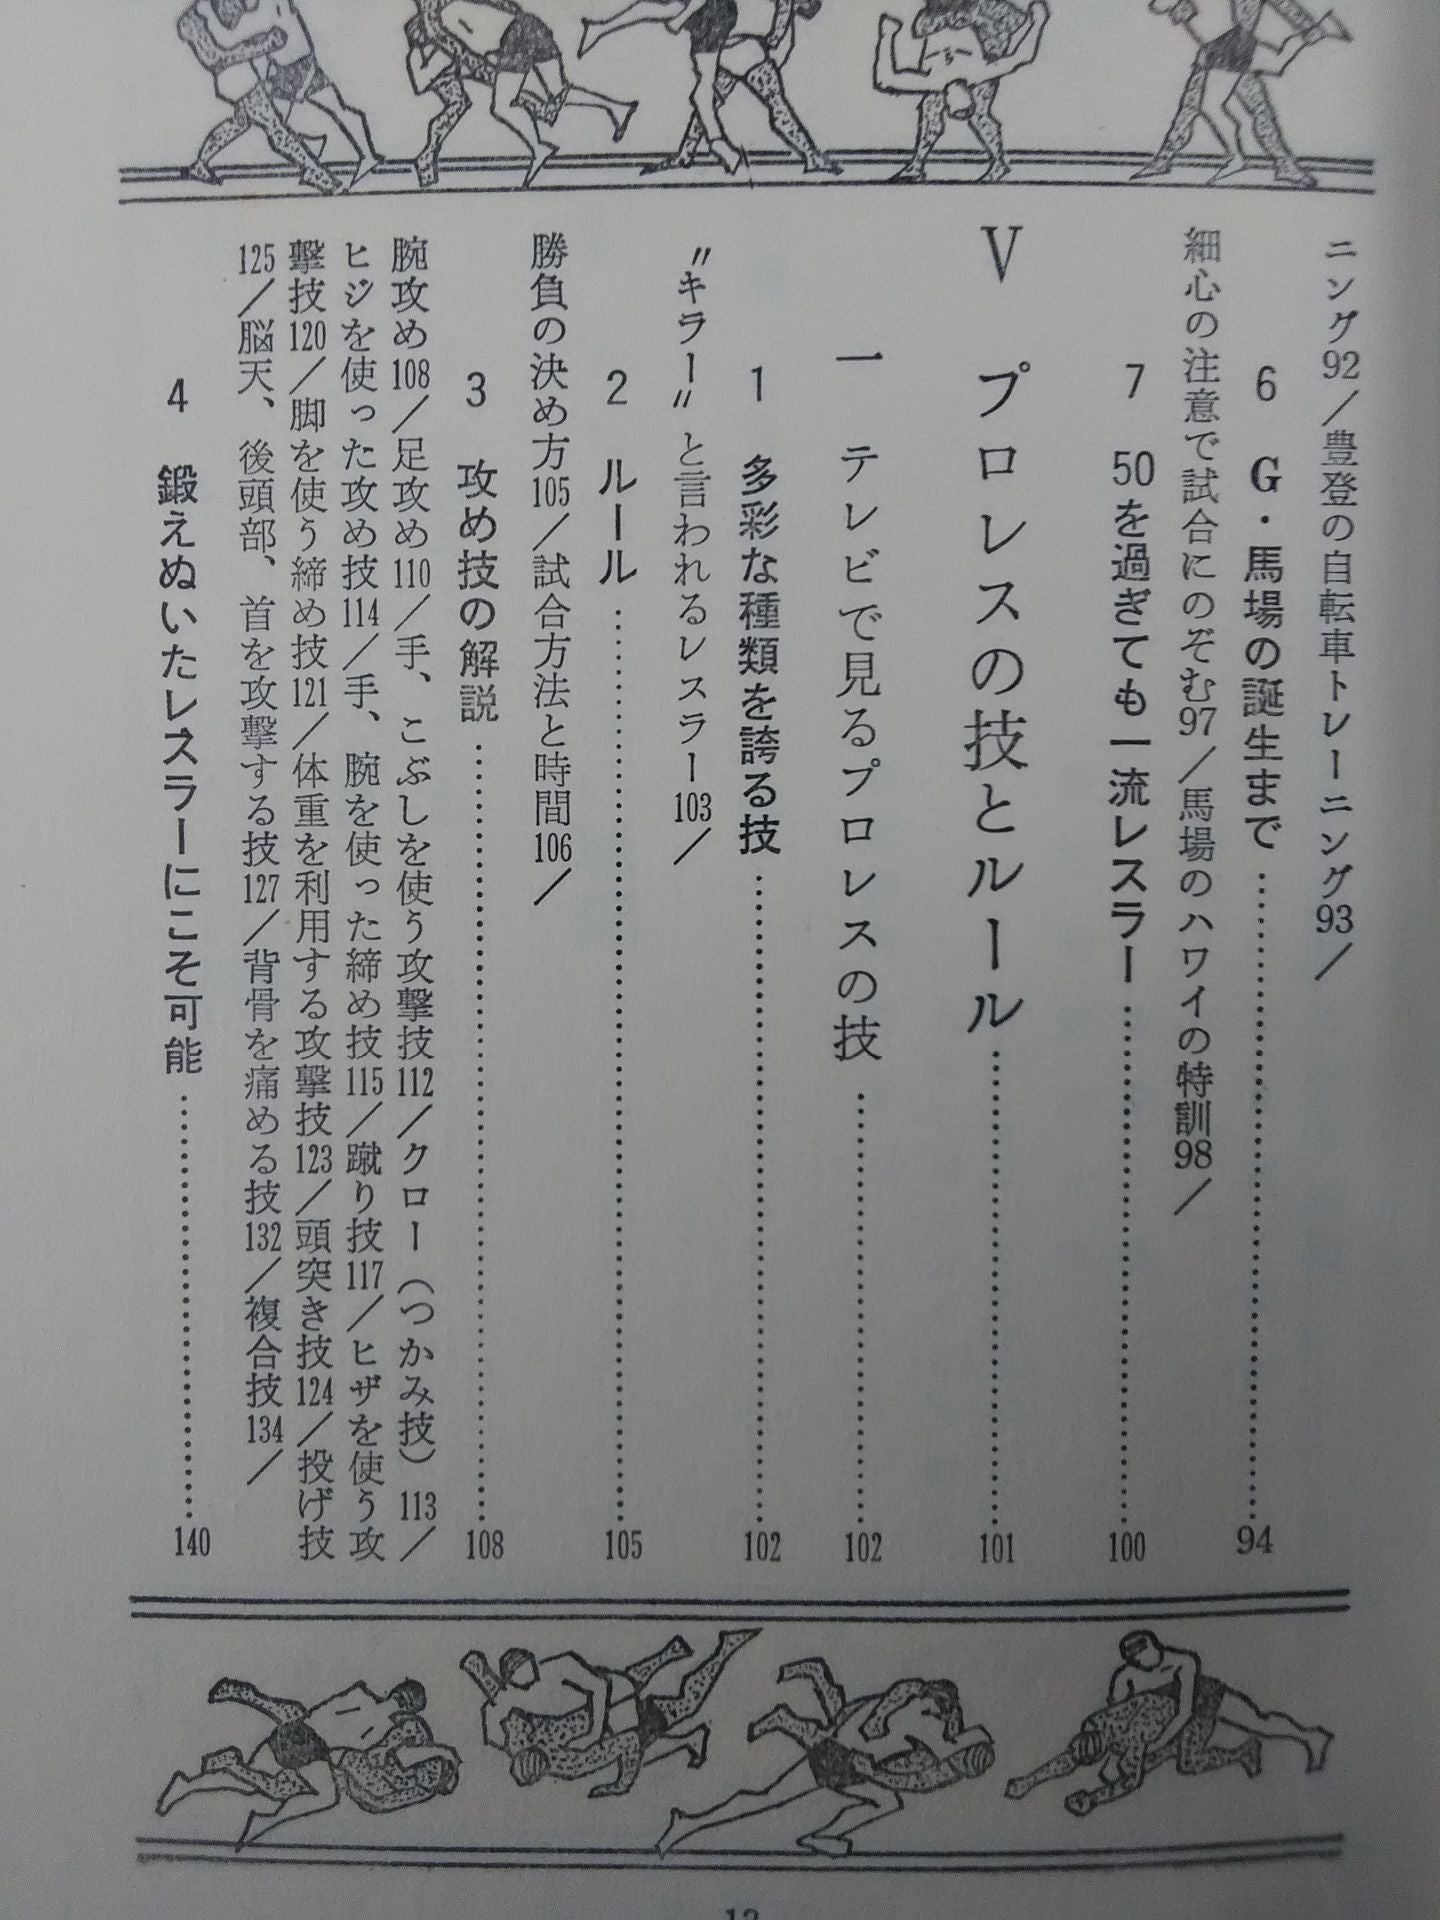 ニング92／豊登の自転車トレーニング93／
6 G・馬場の誕生まで……………94
細心の注意で試合にのぞむ97／馬場のハワイの特訓98／
7 50を過ぎても一流レスラー……………100
V プロレスの技とルール……………101
一 テレビで見るプロレスの技……………102
1 多彩な種類を誇る技……………102
〝キラー〟と言われるレスラー103／
2 ルール……………105
勝負の決め方105／試合方法と時間106／
3 攻め技の解説……………108
腕攻め108／足攻め110／手、こぶしを使う攻撃技112／クロー（つかみ技）113／
ヒジを使った攻め技114／手、腕を使った締め技115／蹴り技117／ヒザを使う攻
撃技120／脚を使う締め技121／体重を利用する攻撃技123／頭突き技124／投げ技
125／脳天、後頭部、首を攻撃する技127／背骨を痛める技132／複合技134／
4 鍛えぬいたレスラーにこそ可能……………140